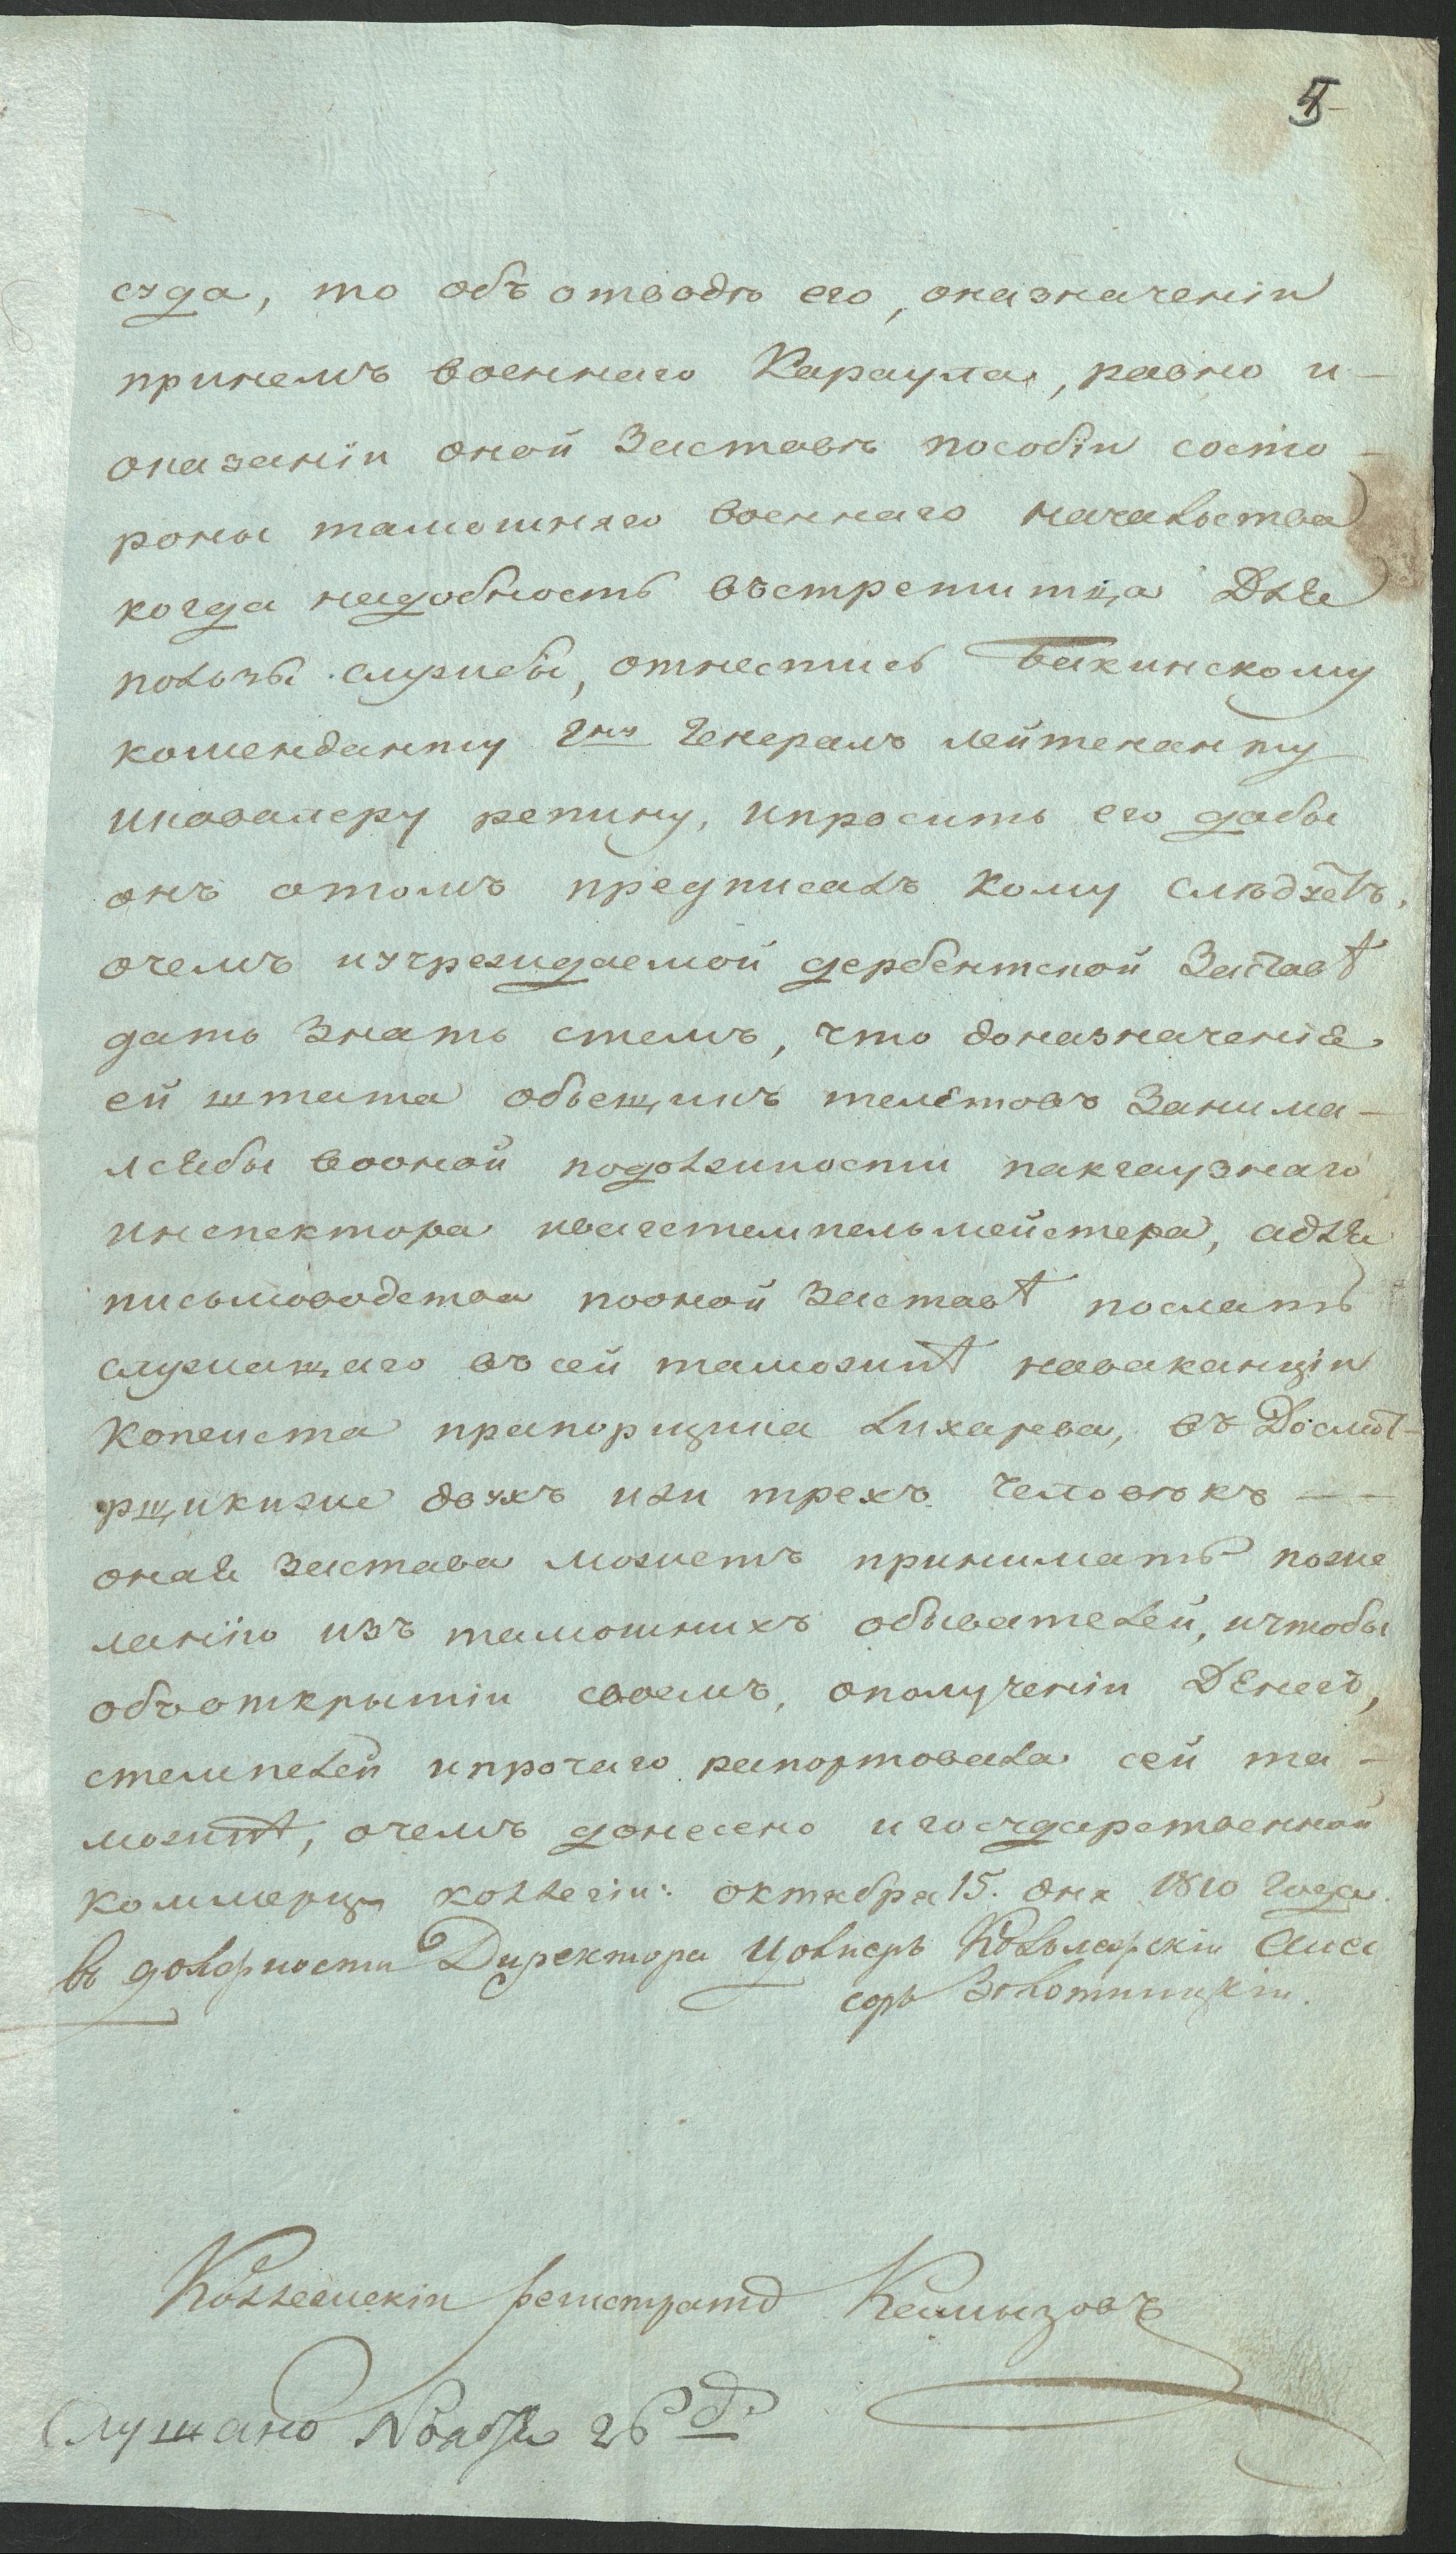 5
суда, то объ отводѣ его, оназначеніи
принемъ военнаго Караула, равно и
оказаніи оной Заставѣ пособіи состо-
роны тамошняго военнаго начальства
когда надобность въстретитца Для
ползы службы, отнестись Бакинскому
коменданту гну Генералъ лейтенанту
икавалеру репину, ипросить его дабы
онъ отомъ предписалъ кому слѣдуетъ,
очемъ иучреждаемой дербентской Заставѣ
дать Знать стемъ, что доназначенія
ей штата обьещикъ Занима-
лсябы вооной подолжности пакгаузнаго
инспектора ивагстемпельмейстера, адля
письмоводства пооной Заставѣ послать
служащаго въсей таможнѣ наваканціи
Копеиста прапорщика Лихарева, въ Досмот-
рщикиже двухъ или трехъ Человѣкъ
оная Застава можетъ принимать поже
ланію изъ тамошнихъ обывателей, ичтобы
объоткрытіи своемъ, ополученіи Денегъ,
стемпелей ипрочаго рапортовала сей та-
можнѣ, очемъ донесено игосударственной
коммерцъ коллегіи: октября 15. дня 1810 Года.
въ должности Директора Цолнеръ Коллежскій Асес
соръ Золотницкій.
Коллежскій регистраторъ Кемызовъ
Слушано Ноября 26 д.